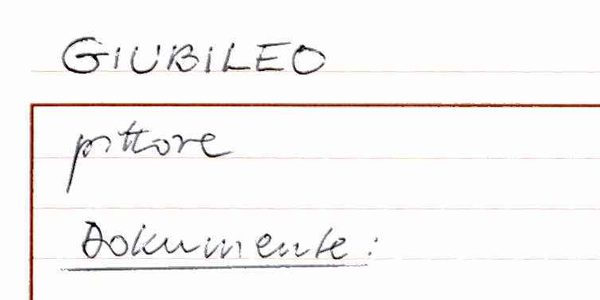 GIUBILEO
pittore
Dokumente: